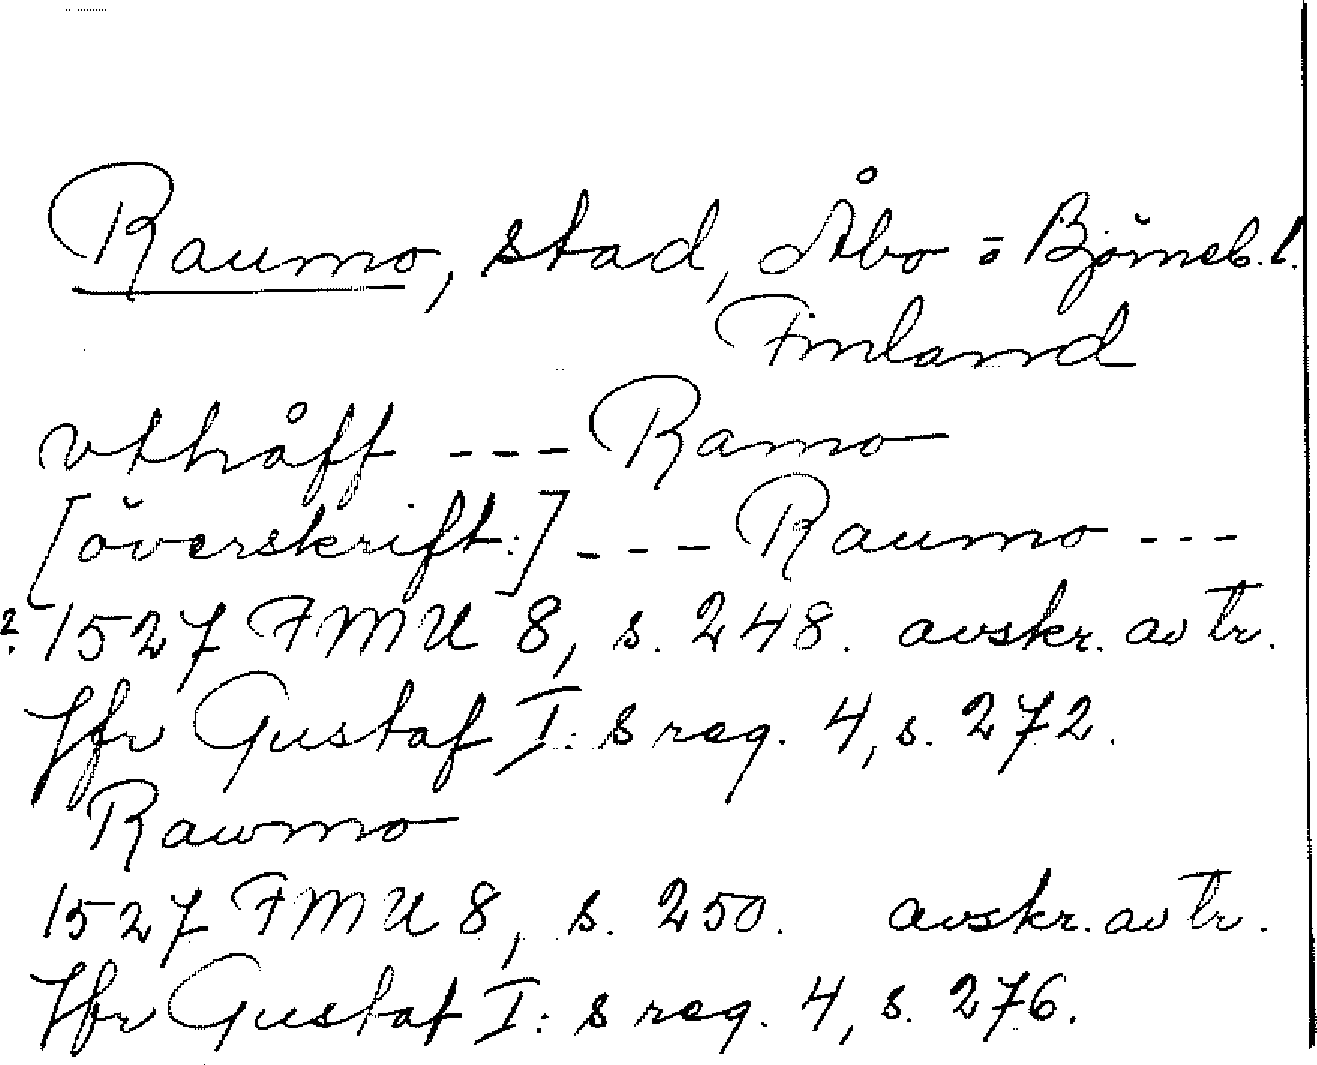 Raumo, stad, Åbo = Björneb. l.
Finland
vthåff --- Ramo
[överskrift:] --- Raumo ---
? 1527 FMU 8, s. 248. avskr. av tr.
Jfr Gustaf I: s reg. 4, s. 272.
Rawmo
1527 FMU 8, s. 250. avskr. av tr.
Jfr Gustaf I: s reg. 4, s. 276.